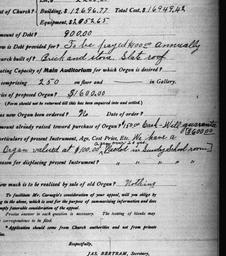 of Church? Building, $12696.77 Total Cost, $16949.42
Equipment, $
Amount of Debt? 900.00
is Debt provided for? To be payed $400.00 annually
Church built of? Brick and stone Slate roof
Seating Capacity of Main Auditorium for which Organ is desired?
comprising 250 on floor and in Gallery.
Price of proposed Organ? $1600.00
(Form should not be returned till this has been inquired into and settled.)
new Organ been Ordered? No Date of order?
amount already raised toward purchase of Organ? Cash Will guarantee $600.00
Particulars of present Instrument, Age, Cost Price, Etc. We have a
Organ valued at $100.00 [Useful in Sunday School room]
reason for displacing present Instrument?
how much is to be realised by sale of old Organ? Nothing
To facilitate Mr. Carnegie's consideration of your appeal, will you oblige by
ing in the above, which is sent for the purpose of summarising information and does
imply favorable consideration of the appeal.
Precise answer to each question is necessary. The testing of blanks may
correspondence to be filed.
* Application should come from Church authorities and not from private
Respectfully,
JAS. BERTRAM, Secretary.